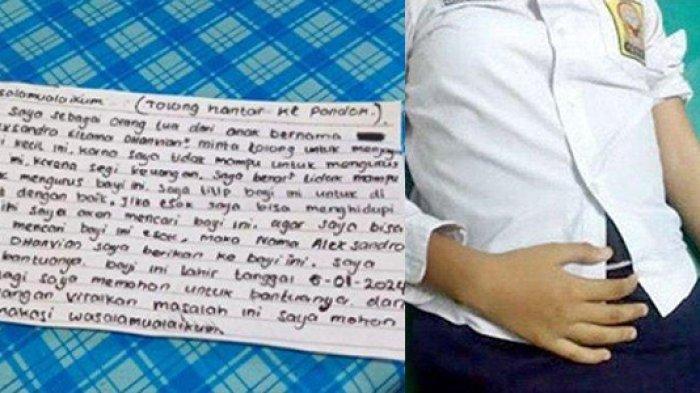 salamualaikum (Tolong hantar ke pondok.).
saya sebagai orang tua dari anak bernama
ksandro kitama Dhanvian² minta tolong untuk
i kecil ini, karna saya tidak mampu untuk mengurus
ni, kerana segi keuangan, saya benar² tidak mampu
k mengurus bayi ini. saya titip bayi ini untuk di
t dengan baik. jika esok saya bisa menghidupi
ini saya akan mencari bayi ini. agar saya bisa
mencari bayi ini esok, maka nama Alexsandro
Dhanvian saya berikan ke bayi ini. saya
bantuanya. bayi ini lahir tanggal 6-01-2024
agi saya memohon untuk bantuanya. dan
angan viralkan masalah ini saya mohon
makasi wasalamualaikum.